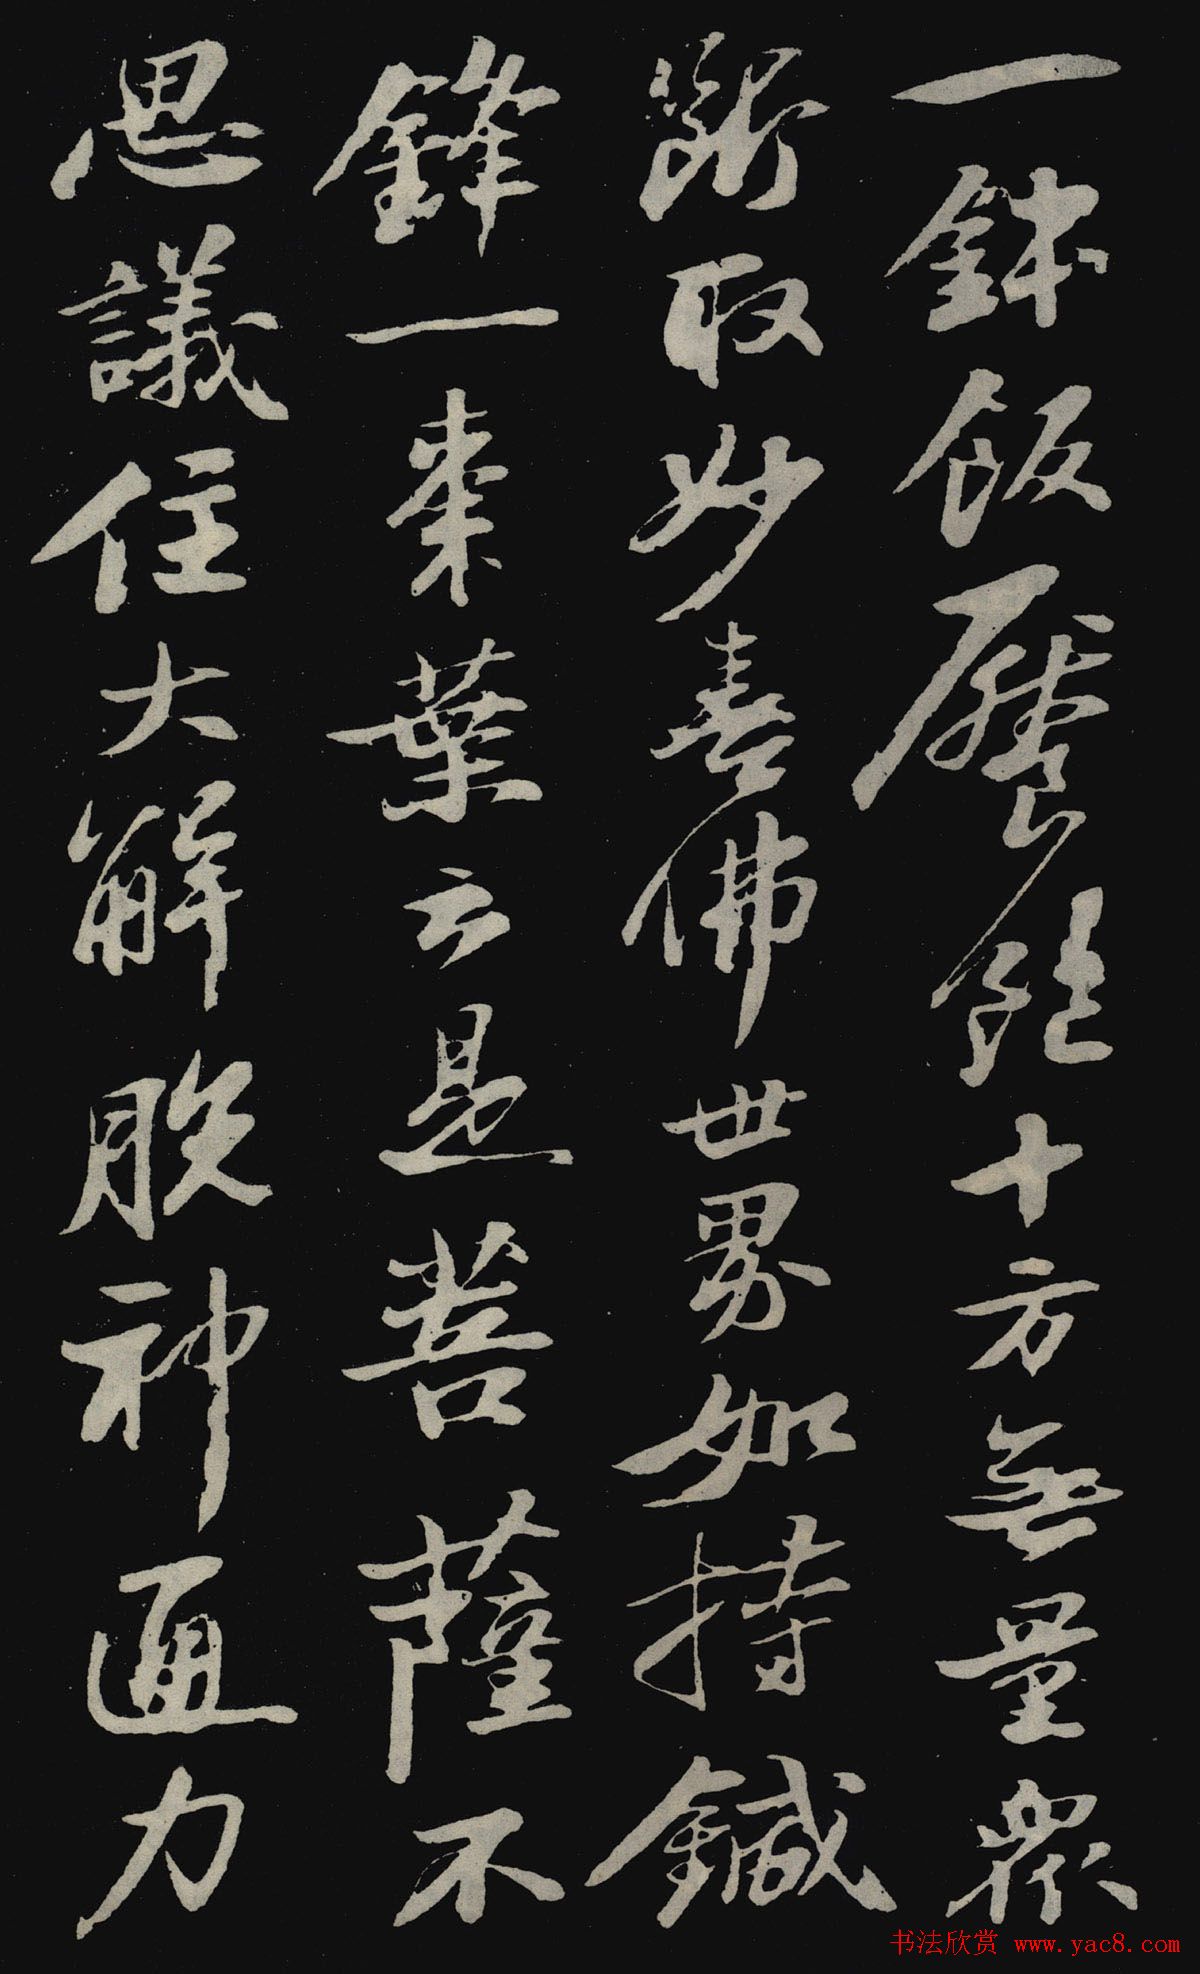 一鉢飯饜飽十方無量眾
斷取妙喜佛世界如持鍼
鋒一棗葉云是菩薩不
思議住大解脫神通力
书法欣赏 www.yac8.com